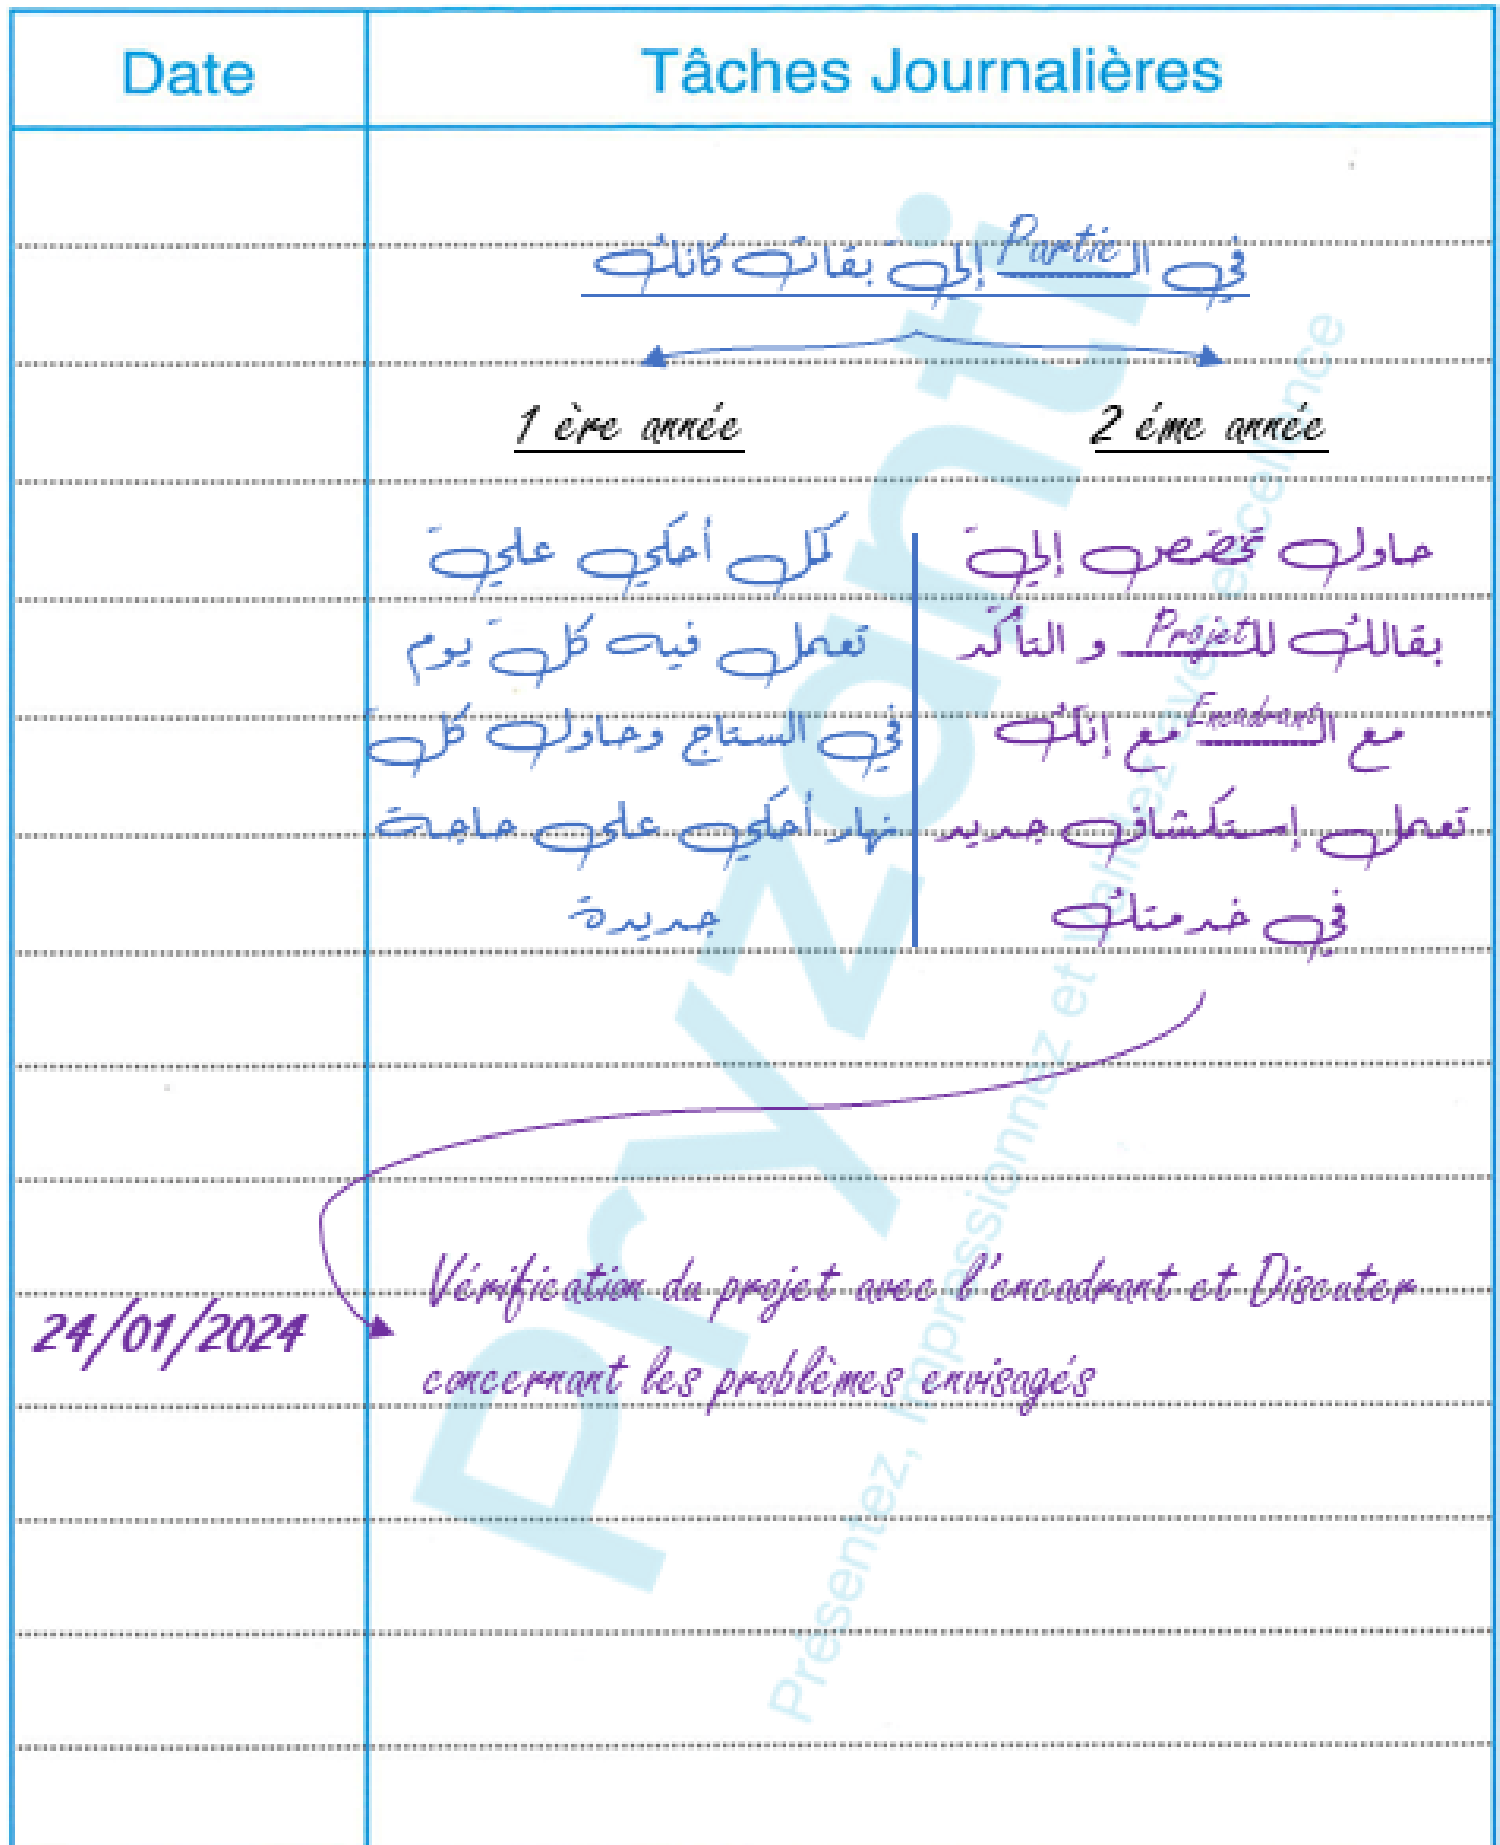 Date
Tâches Journalières
في الـ Partie إلي بقات كانك
1 ère année
2 éme année
كمّل أحكي علي
تعمل فيه كلّ يوم
في الستاج وحاول كلّ
نهار أحكي على حاجة
جديدة
حاول تخصّص إلي
بقالك للـ Projet و التأكّد
مع الـ Encadrant مع إنّك
تعمل إستكشاف جديد
في خدمتك
24/01/2024
Vérification du projet avec l'encadrant et Discuter
concernant les problèmes envisagés
Pryzanti
Présentez, Impressionnez et Validez avec excellence